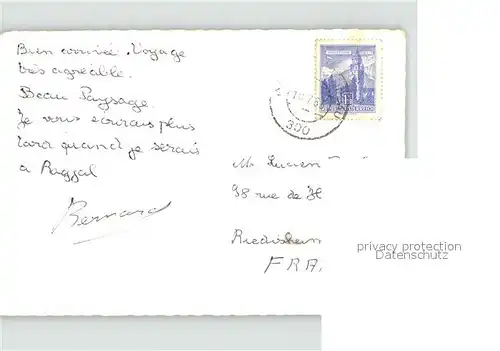 Bien arrivée. Voyage
très agréable.
Beau Paysage.
Je vous écrirais plus
tard quand je serais
a
Bernard
Mr Lucien
98 rue de H
Riedisheim
FRA
300
privacy protection
Datenschutz